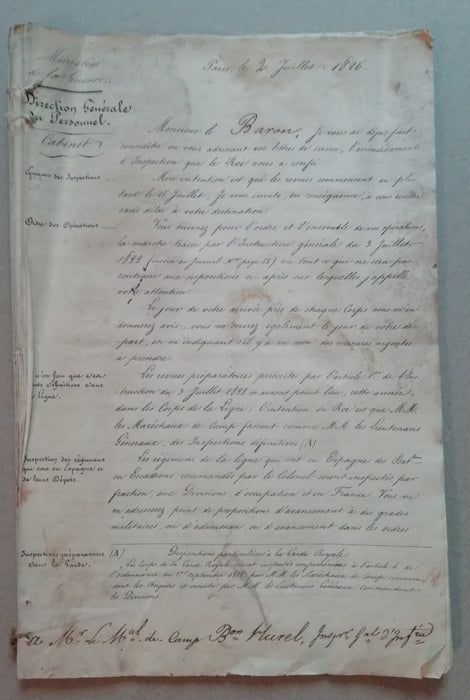 Ministère
de la Guerre.
Direction Générale
du Personnel.
Cabinet
Paris, le 2 Juillet 1826
Monsieur le Baron, Je vous ai déjà fait
connaître en vous adressant vos lettres de service, l'arrondissement
d'Inspection que le Roi vous a confié.
Époques des Inspections.
Mon intention est que les revues commencent au plus
tard le 15 Juillet. Je vous invite, en conséquence, à vous rendre
sans délai à votre destination.
Ordre des Opérations
Vous suivrez pour l'ordre et l'ensemble de vos opérations,
la marche tracée par l'Instruction générale du 3 Juillet
(insérée au journal page 28) en tout ce qui ne sera pas
contraire aux dispositions ci-après sur lesquelles j'appelle
votre attention.
Le jour de votre arrivée près de chaque Corps vous m'en
donnerez avis, vous m'écrirez également le jour de votre dé-
part, en m'indiquant s'il y a ou non des mesures urgentes
à prendre.
Définitives dans
la Ligne.
Les revues préparatoires prescrites par l'article 1er de l'Ins-
truction du 3 Juillet n'auront point lieu, cette année,
dans les Corps de la Ligne; l'intention du Roi est que M.M.
les Maréchaux de Camp fassent comme M.M. les Lieutenans
Généraux, des Inspections définitives (A)
Inspection des régimens
qui sont en Espagne et
de leurs Dépôts.
Les régimens de la ligne qui ont en Espagne des Batons
ou Escadrons commandés par le Colonel seront inspectés par
fraction, aux Divisions d'occupation et en France. Vous ne
m'adresserez point de propositions d'avancement à des grades
militaires, ni d'admission ou d'avancement dans les ordres
Inspections préparatoires
dans la Garde.
(A) Dispositions particulières à la Garde Royale.
Les Corps de la Garde Royale seront inspectés conformément à l'article 2 de
l'ordonnance du 1er septembre par M.M. les Maréchaux de Camp commandant
les Brigades et ensuite par M.M. les Lieutenans Généraux Commandant
les Divisions.
a Mr Le Mal de Camp Bon Hurel, Inspr Gal d'Infrie